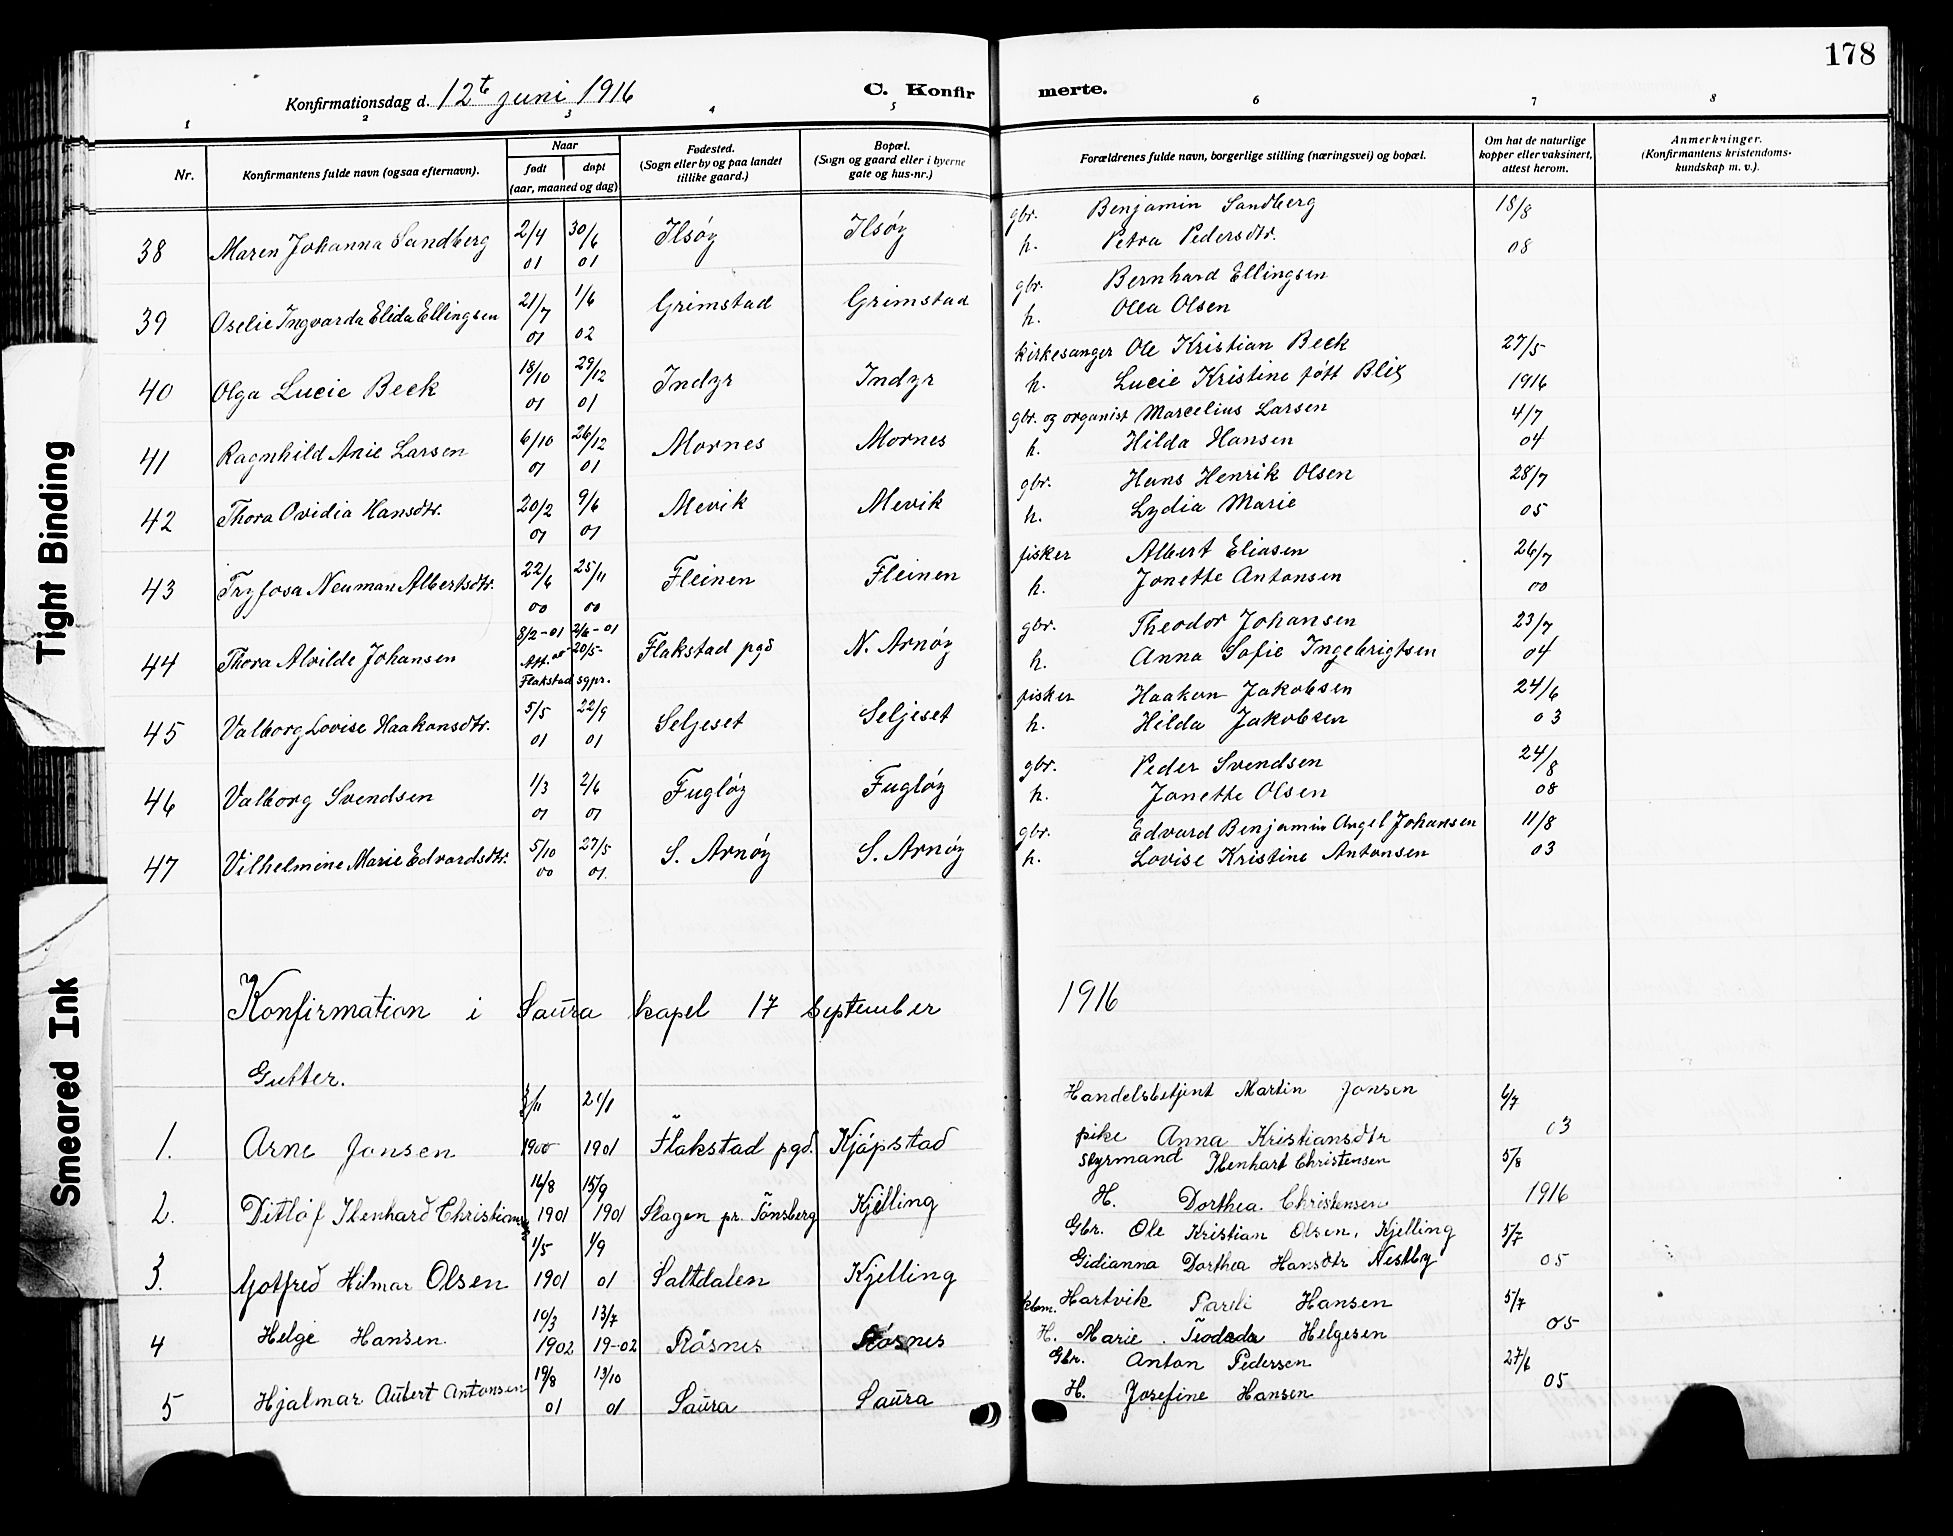 178
Konfirmationsdag d. 12te juni 1916
C. Konfirmerte.
1 2 3 4 5 6 7 8
Nr.
Konfirmantens fulde navn (ogsaa efternavn).
Naar
født døpt
(aar, maaned og dag)
Fødested.
(Sogn eller by og paa landet
tillike gaard.)
Bopæl.
(Sogn og gaard eller i byerne
gate og hus-nr.)
Forældrenes fulde navn, borgerlige stilling (næringsvei) og bopæl.
Om hat de naturlige
kopper eller vaksinert,
attest herom.
Anmerkninger.
(Konfirmantens kristendoms-
kundskap m. v.).
38 Maren Johanna Sandberg 2/4 01 30/6 01 Ilsöy Ilsöy gbr. Benjamin Sandberg 18/8
h. Petra Pedersdtr. 08
39 Oselie Ingvarda Elida Ellingsen 21/7 01 1/6 02 Grimstad Grimstad gbr. Bernhard Ellingsen
h. Olea Olsen
40 Olga Lucie Beck 18/10 01 29/12 01 Indyr Indyr kirkesanger Ole Kristian Beck 27/5
h. Lucie Kristine fött Blix 1916
41 Ragnhild Anie Larsen 6/10 01 26/12 01 Mornes Mornes gbr. og organist Marcelius Larsen 4/7
h. Hilda Hansen 04
42 Thora Ovidia Hansdtr. 20/2 01 9/6 01 Mevik Mevik gbr. Hans Henrik Olsen 28/7
h. Lydia Marie 05
43 Tryfosa Neuman Albertsdtr. 22/6 00 25/11 00 Fleinen Fleinen fisker Albert Eliasen 26/7
h. Jonette Antonsen 00
44 Thora Alvilde Johansen 8/2-01 2/6-01 Flakstad pgd N. Arnöy gbr. Theodor Johansen 23/7
Att. av 20/5-
Flakstad sgpr.
h. Anna Sofie Ingebrigtsen 04
45 Valborg Lovise Haakonsdtr. 5/5 01 22/9 01 Seljeset Seljeset fisker Haakon Jakobsen 24/6
h. Hilda Jakobsen 03
46 Valborg Svendsen 1/3 01 2/6 01 Fuglöy Fuglöy gbr. Peder Svendsen 24/8
h. Jonette Olsen 08
47 Vilhelmine Marie Edvardsdtr. 5/10 00 27/5 01. S. Arnöy S. Arnöy gbr. Edvard Benjamin Angel Johansen 11/8
h. Lovise Kristine Antonsen 03
Konfirmation i Saura kapel 17 September 1916
Gutter.
1. Arne Jonsen 1900 21/1 1901 Flakstad pgd. Kjöpstad Handelsbetjent Martin Jonsen 6/7
pike Anna Kristiansdtr 03
2. Ditlöf Ibenhard 16/8 1901 15/9 1901 Slagen pr. Tönsberg Kjelling Styrmand Ibenhart Christensen 5/8
H. Dorthea Christensen 1916
3. Gotfred Hilmar Olsen 1/5 1901 1/9 01 Saltdalen Kjelling Gbr. Ole Kristian Olsen, Kjelling 5/7
Gidianna Dorthea Hansdtr Nestby 05
4 Helge Hansen 10/3 1902 13/7 19-02 Rösnes Rösnes Hartvik Hansen 5/7
H. Marie Helgesen 05
5 Hjalmar Autert Antonsen 19/8 01 13/10 01 Saura Saura Gbr. Anton Pedersen 27/6
H. Josefine Hansen 05
Tight Binding
Smeared Ink